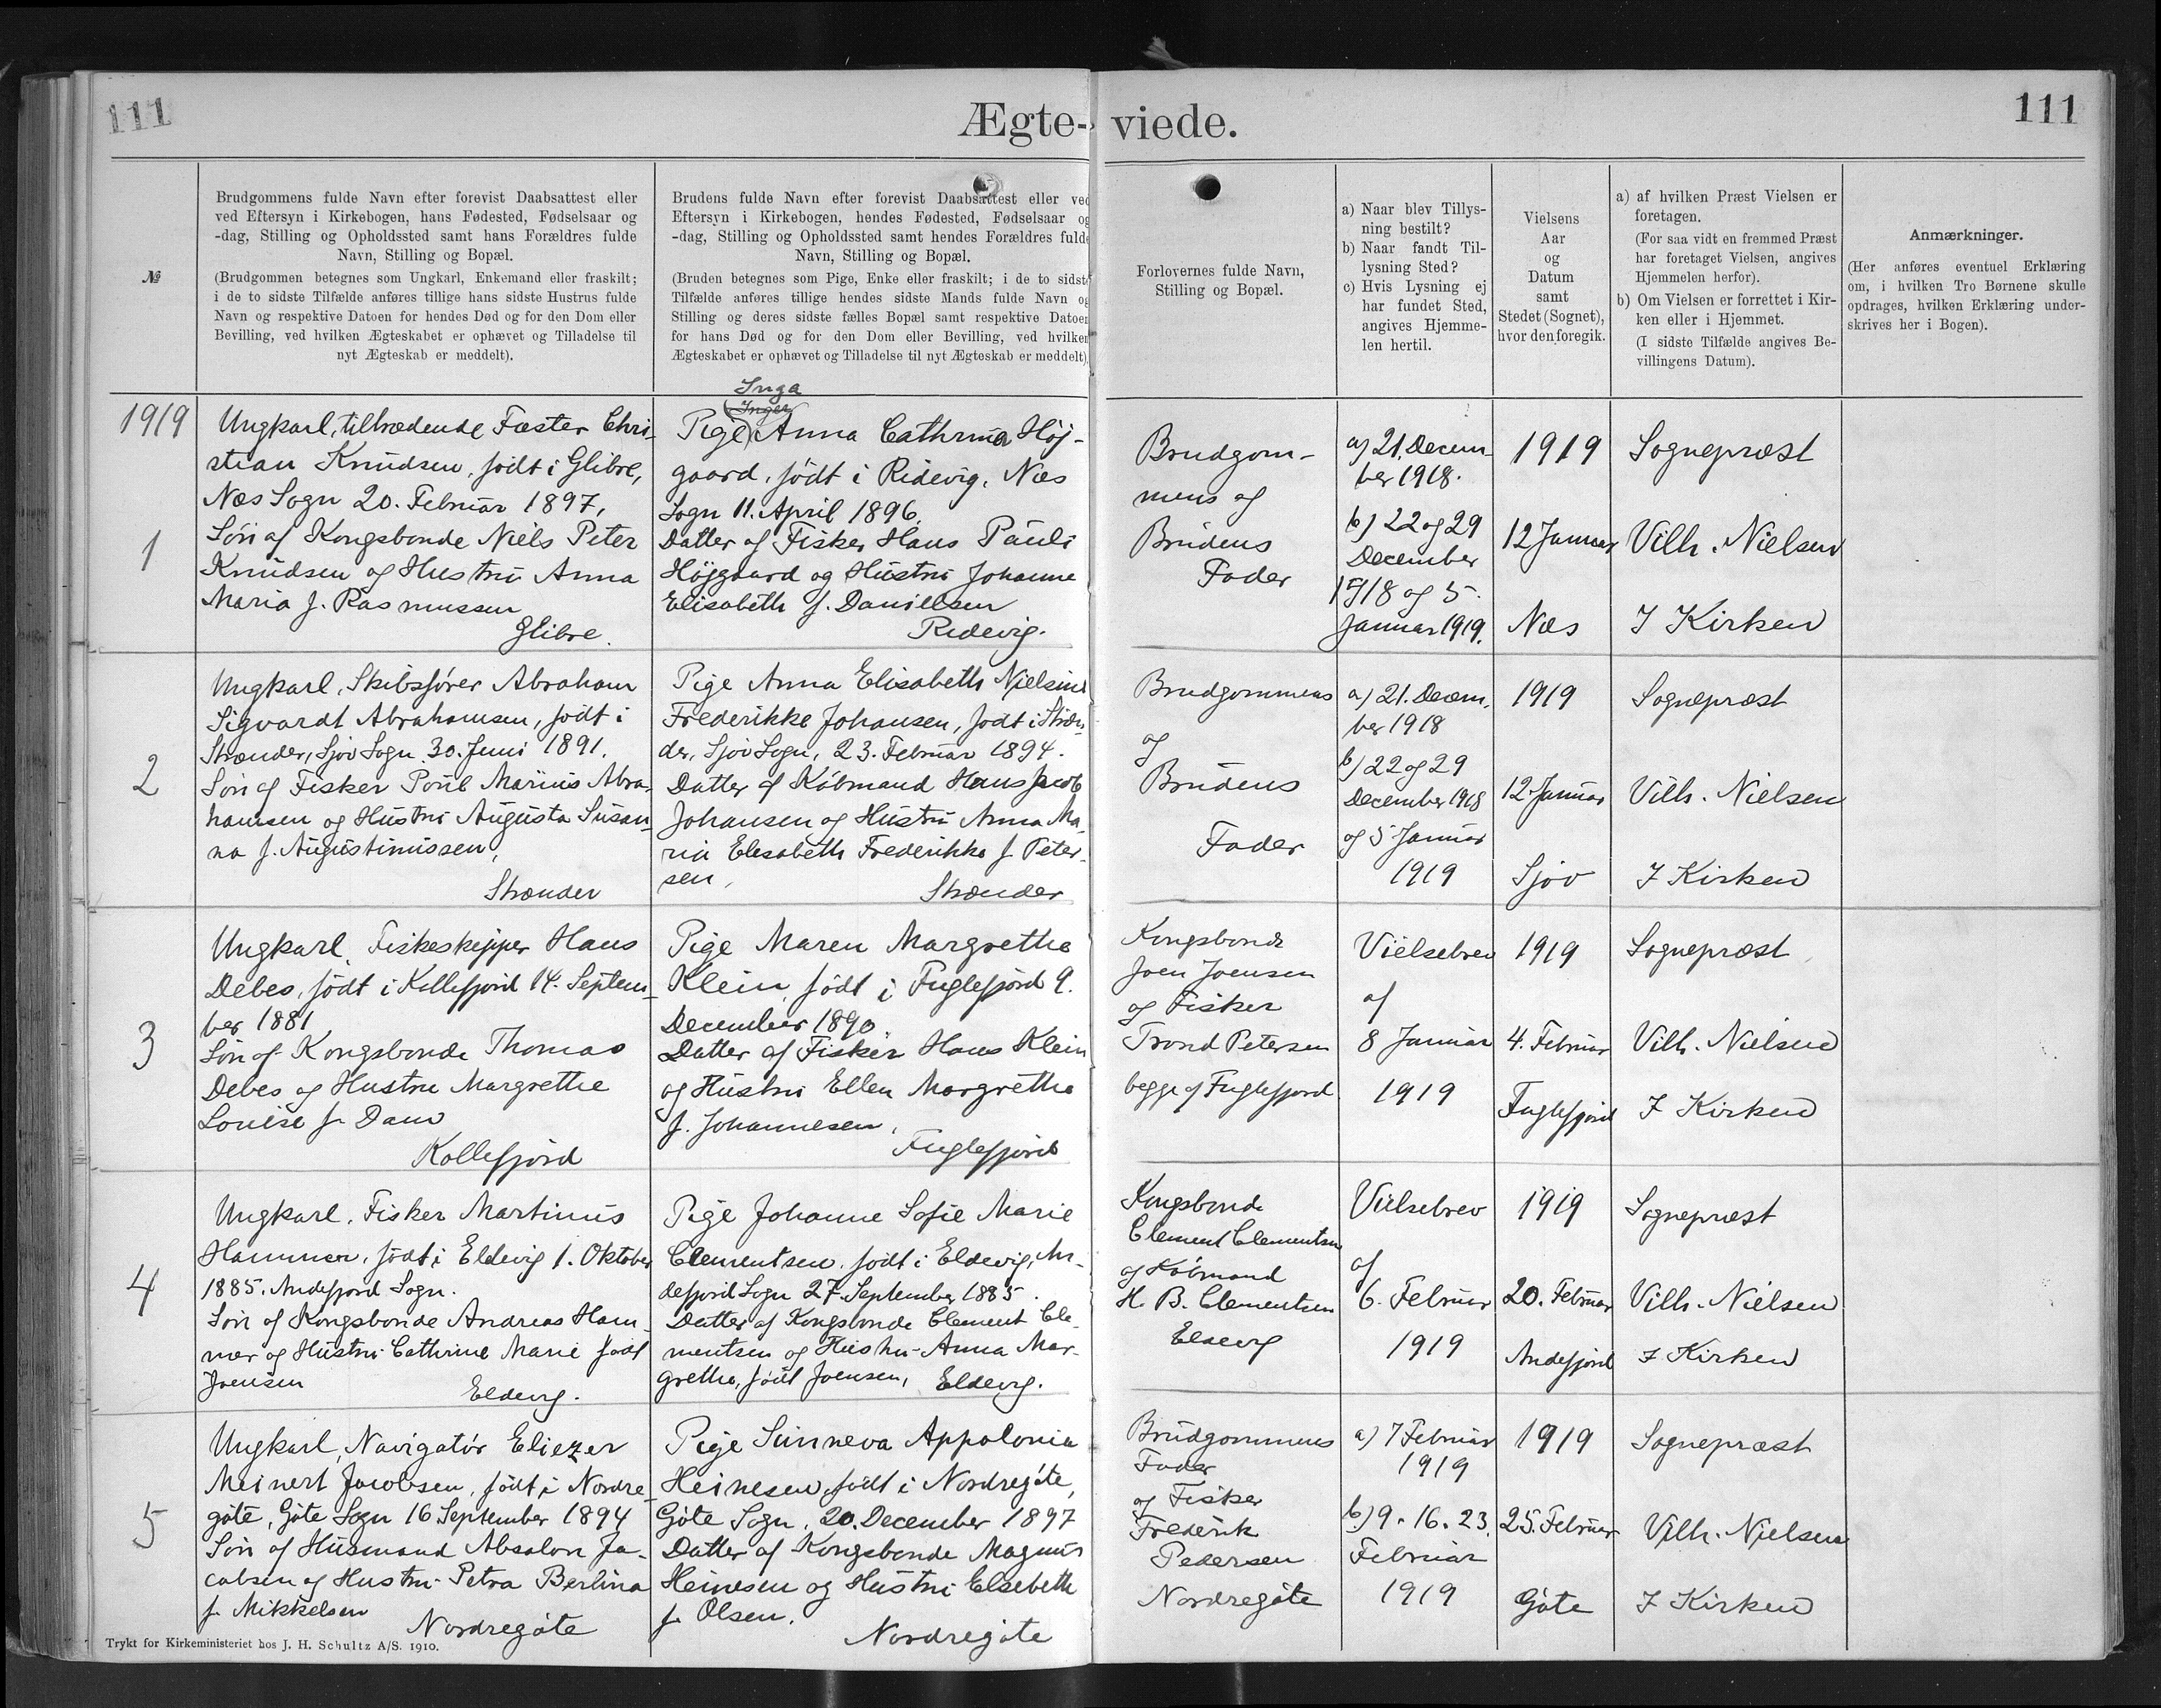 111
Ægte-
viede.
111
№
Brudgommens fulde Navn efter forevist Daabsattest eller
ved Eftersyn i Kirkebogen, hans Fødested, Fødselsaar og
-dag, Stilling og Opholdssted samt hans Forældres fulde
Navn, Stilling og Bopæl.
(Brudgommen betegnes som Ungkarl, Enkemand eller fraskilt;
i de to sidste Tilfælde anføres tillige hans sidste Hustrus fulde
Navn og respektive Datoen for hendes Død og for den Dom eller
Bevilling, ved hvilken Ægteskabet er ophævet og Tilladelse til
nyt Ægteskab er meddelt).
Brudens fulde Navn efter forevist Daabsattest eller ved
Eftersyn i Kirkebogen, hendes Fødested, Fødselsaar og
-dag, Stilling og Opholdssted samt hendes Forældres fulde
Navn, Stilling og Bopæl.
(Bruden betegnes som Pige, Enke eller fraskilt; i de to sidste
Tilfælde anføres tillige hendes sidste Mands fulde Navn og
Stilling og deres sidste fælles Bopæl samt respektive Datoen
for hans Død og for den Dom eller Bevilling, ved hvilken
Ægteskabet er ophævet og Tilladelse til nyt Ægteskab er meddelt)
Forlovernes fulde Navn,
Stilling og Bopæl.
a) Naar blev Tillys-
ning bestilt?
b) Naar fandt Til-
lysning Sted?
c) Hvis Lysning ej
har fundet Sted,
angives Hjemme-
len hertil.
Vielsens
Aar
og
Datum
samt
Stedet (Sognet),
hvor den foregik.
a) af hvilken Præst Vielsen er
foretagen.
(For saa vidt en fremmed Præst
har foretaget Vielsen, angives
Hjemmelen herfor).
b) Om Vielsen er forrettet i Kir-
ken eller i Hjemmet.
(I sidste Tilfælde angives Be-
villingens Datum).
Anmærkninger.
(Her anføres eventuel Erklæring
om, i hvilken Tro Børnene skulle
opdrages, hvilken Erklæring under-
skrives her i Bogen).
1919
1
Ungkarl, tiltrædende Fæster Chri-
stian Knudsen, født i Glibre,
Næs Sogn 20. Februar 1897,
Søn af Kongsbonde Niels Peter
Knudsen og Hustru Anna
Maria f. Rasmussen
Glibre.
Inga
(Inger)
Pige Anna Cathrina Høj-
gaard, født i Ridevig, Næs
Sogn 11. April 1896,
Datter af Fisker Hans Pauli
Højgaard og Hustru Johanne
Elisabeth f. Danielsen
Ridevig.
Brudgom-
mens og
Brudens
Fader
a) 21. Decem-
ber 1918.
b) 22 og 29
December
1918 og 5.
Januar 1919.
1919
12 Januar
Næs
Sognepræst
Vilh. Nielsen
I Kirken
2
Ungkarl, Skibsfører Abraham
Sigvardt Abrahamsen, født i
Strænder, Sjov Sogn 30. Juni 1891.
Søn af Fisker Poul Marius Abra-
hamsen og Hustru Augusta Susan-
na f. Augustinussen,
Strænder
Pige Anna Elisabeth Nielsine
Frederikke Johansen, født i Stræn-
der, Sjov Sogn, 23. Februar 1894.
Datter af Købmand Hans Jacob
Johansen og Hustru Anna Ma-
ria Elesabeth Frederikke f. Peter-
sen,
Strænder
Brudgommens
og
Brudens
Fader
a) 21. Decem-
ber 1918
b) 22 og 29
December 1918
og 5 Januar
1919
1919
12 Januar
Sjov
Sognepræst
Vilh. Nielsen
I Kirken
3
Ungkarl, Fiskeskipper Hans
Debes, født i Kollefjord 14. Septem-
ber 1881
Søn af Kongsbonde Thomas
Debes og Hustru Margrethe
Louise f. Dam
Kollefjord
Pige Maren Margretha
Klein, født i Fuglefjord 9.
December 1890.
Datter af Fisker Hans Klein
og Hustru Ellen Margretha
f. Johannesen,
Fuglefjord
Kongsbonde
Joen Joensen
og Fisker
Trond Petersen
begge af Fuglefjord
Vielsebrev
af
8 Januar
1919
1919
4. Februar
Fuglefjord
Sognepræst
Vilh. Nielsen
I Kirken
4
Ungkarl, Fisker Martinus
Hammer, født i Eldevig 1. Oktober
1885. Andefjord Sogn.
Søn af Kongsbonde Andreas Ham-
mer og Hustru Cathrine Marie født
Joensen
Eldevig.
Pige Johanne Sofie Marie
Clementsen, født i Eldevig, An-
defjord Sogn 27. September 1885.
Datter af Kongsbonde Clement Cle-
mentsen og Hustru Anna Mar-
gretha, født Joensen,
Eldevig.
Kongsbonde
Clement Clementsen
og Købmand
H. B. Clementsen
Eldevig
Vielsebrev
af
6. Februar
1919
1919
20. Februar
Andefjord
Sognepræst
Vilh. Nielsen
I Kirken
5
Ungkarl, Navigatør Eliezer
Meinert Jacobsen, født i Nordre-
gøte, Gøte Sogn 16 September 1894
Søn af Husmand Absalon Ja-
cobsen og Hustru Petra Berlina
f. Mikkelsen
Nordregøte
Pige Sunneva Appolonia
Heinesen, født i Nordregøte,
Gøte Sogn, 20. December 1897
Datter af Kongsbonde Magnus
Heinesen og Hustru Elsebeth
f. Olsen.
Nordregøte
Brudgommens
Fader
og Fisker
Frederik
Pedersen
Nordregøte
a) 7 Februar
1919
b) 9. 16. 23.
Februar
1919
1919
25. Februar
Gøte
Sognepræst
Vilh. Nielsen
I Kirken
Trykt for Kirkeministeriet hos J. H. Schultz A/S. 1910.